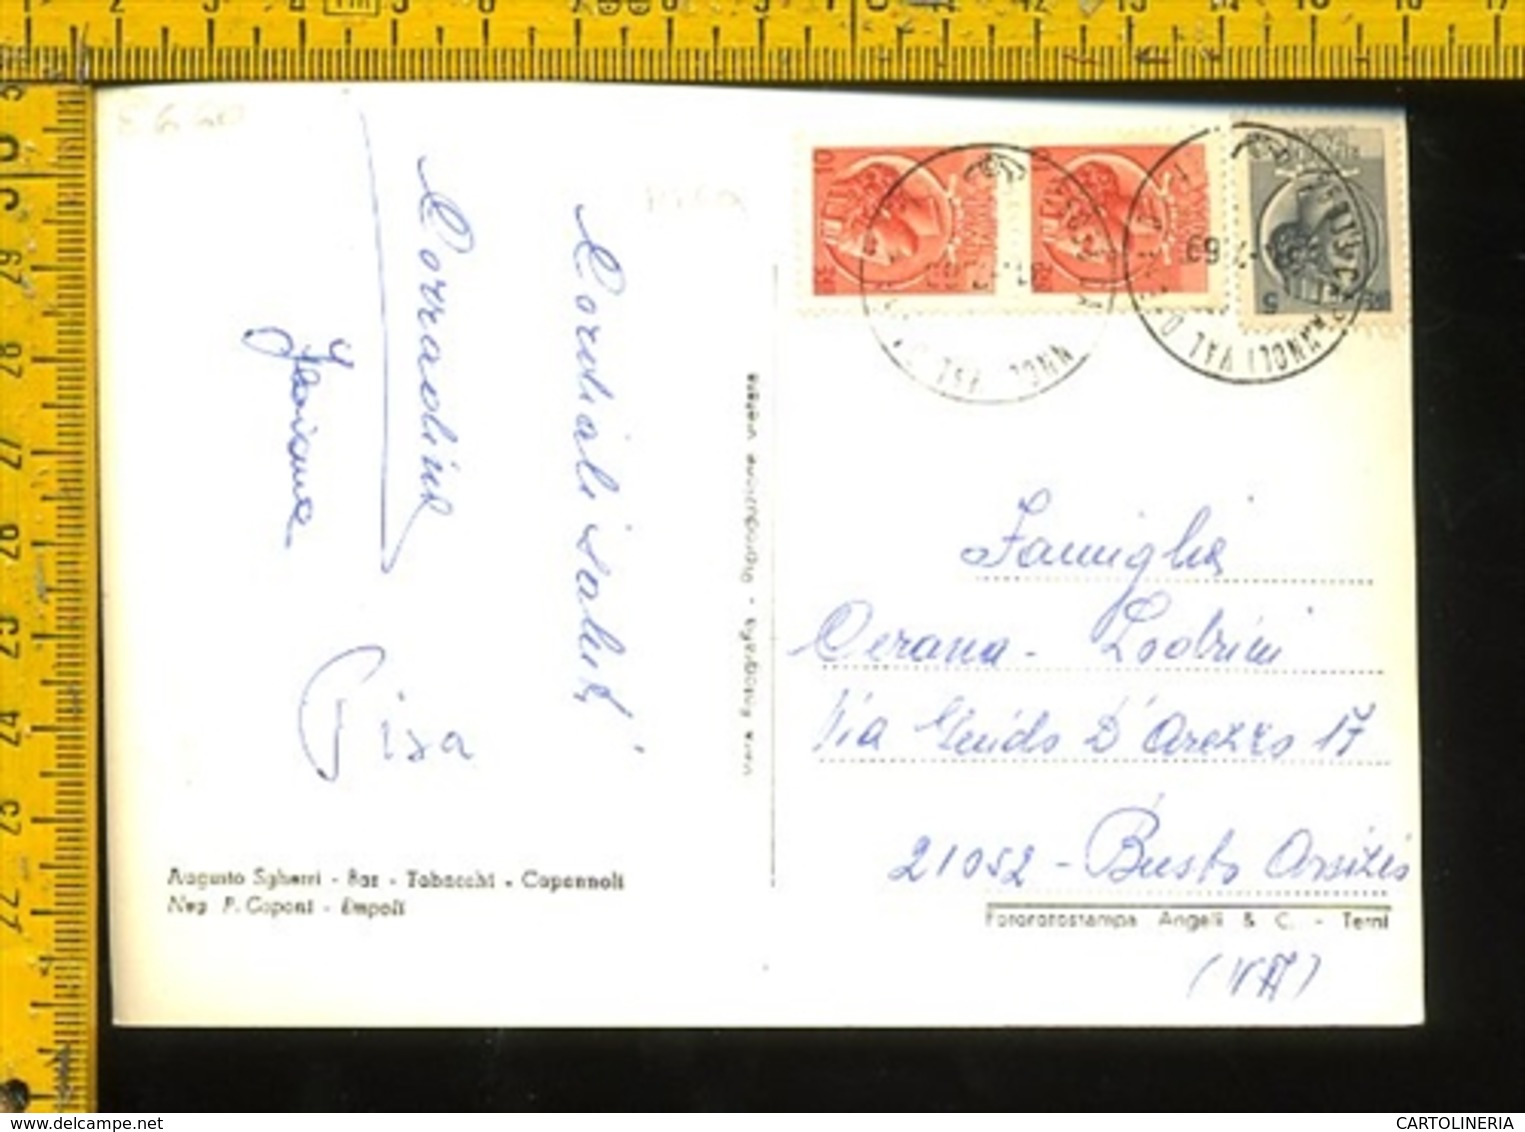 Cordiali saluti
Corradina
Gisa
Famiglia
Cerana - Lodrini
Via Guido D'Arezzo 17
21052 - Busto Arsizio
(VA)
Augusto Sgherri - Bar - Tabacchi - Capannoli
Neg P. Caponi - Empoli
Fotocrostampa Angeli & C. - Terni
Vera Fotografia - Riproduzione vietata
CAPANNOLI VAL D'ERA
10
5
CARTOLINERIA